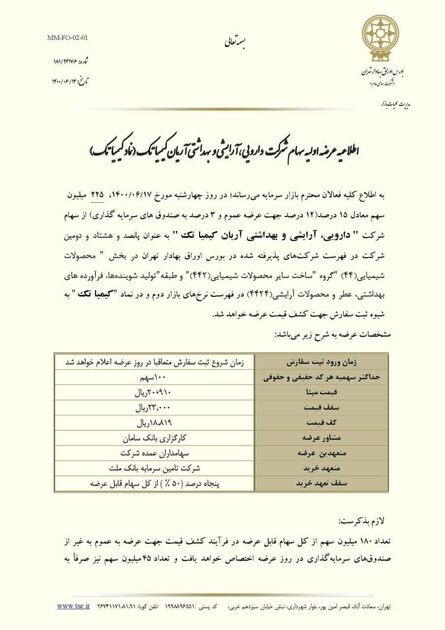 MM-FO-02-01
بسمه تعالی
شماره: ۱۸۱/۹۴۱۷۶
تاریخ: ۱۴۰۰/۰۶/۱۴
بورس اوراق بهادار تهران
(شرکت سهامی عام)
مدیریت عملیات بازار
اطلاعیه عرضه اولیه سهام شرکت دارویی، آرایشی و بهداشتی آریان کیمیا تک (نماد کیمیاتک)
به اطلاع کلیه فعالان محترم بازار سرمایه می‌رساند؛ در روز چهارشنبه مورخ ۱۴۰۰/۰۶/۱۷، ۲۲۵ میلیون
سهم معادل ۱۵ درصد(۱۲ درصد جهت عرضه عموم و ۳ درصد به صندوق های سرمایه گذاری) از سهام
شرکت " دارویی، آرایشی و بهداشتی آریان کیمیا تک " به عنوان پانصد و هشتاد و دومین
شرکت در فهرست شرکت‌های پذیرفته شده در بورس اوراق بهادار تهران در بخش " محصولات
شیمیایی(۴۴) "گروه "ساخت سایر محصولات شیمیایی(۴۴۲)" و طبقه"تولید شوینده‌ها، فرآورده های
بهداشتی، عطر و محصولات آرایشی(۴۴۲۴) در فهرست نرخ‌های بازار دوم و در نماد "کیمیا تک" به
شیوه ثبت سفارش جهت کشف قیمت عرضه خواهد شد.
مشخصات عرضه به شرح زیر می‌باشد:
زمان ورود ثبت سفارش زمان شروع ثبت سفارش متعاقبا در روز عرضه اعلام خواهد شد
حداکثر سهمیه هر کد حقیقی و حقوقی ۱۰۰سهم
قیمت مبنا ۲۰،۹۱۰ریال
سقف قیمت ۲۳،۰۰۰ریال
کف قیمت ۱۸،۸۱۹ریال
مشاور عرضه کارگزاری بانک سامان
متعهدین عرضه سهامداران عمده شرکت
متعهد خرید شرکت تامین سرمایه بانک ملت
سقف تعهد خرید پنجاه درصد (۵۰ ٪) از کل سهام قابل عرضه
لازم بذکرست:
تعداد ۱۸۰ میلیون سهم از کل سهام قابل عرضه در فرآیند کشف قیمت جهت عرضه به عموم به غیر از
صندوق‌های سرمایه‌گذاری در روز عرضه اختصاص خواهد یافت و تعداد ۴۵ میلیون سهم نیز صرفاً به
تهران، سعادت آباد، قیصر امین پور، بلوار شهرداری، نبش خیابان سیزدهم غربی، کد پستی: ۱۹۹۸۸۹۶۵۵۱ تلفن گویا: ۲۶۷۳۱۱۷۱،۸۱،۹۱ www.tse.ir